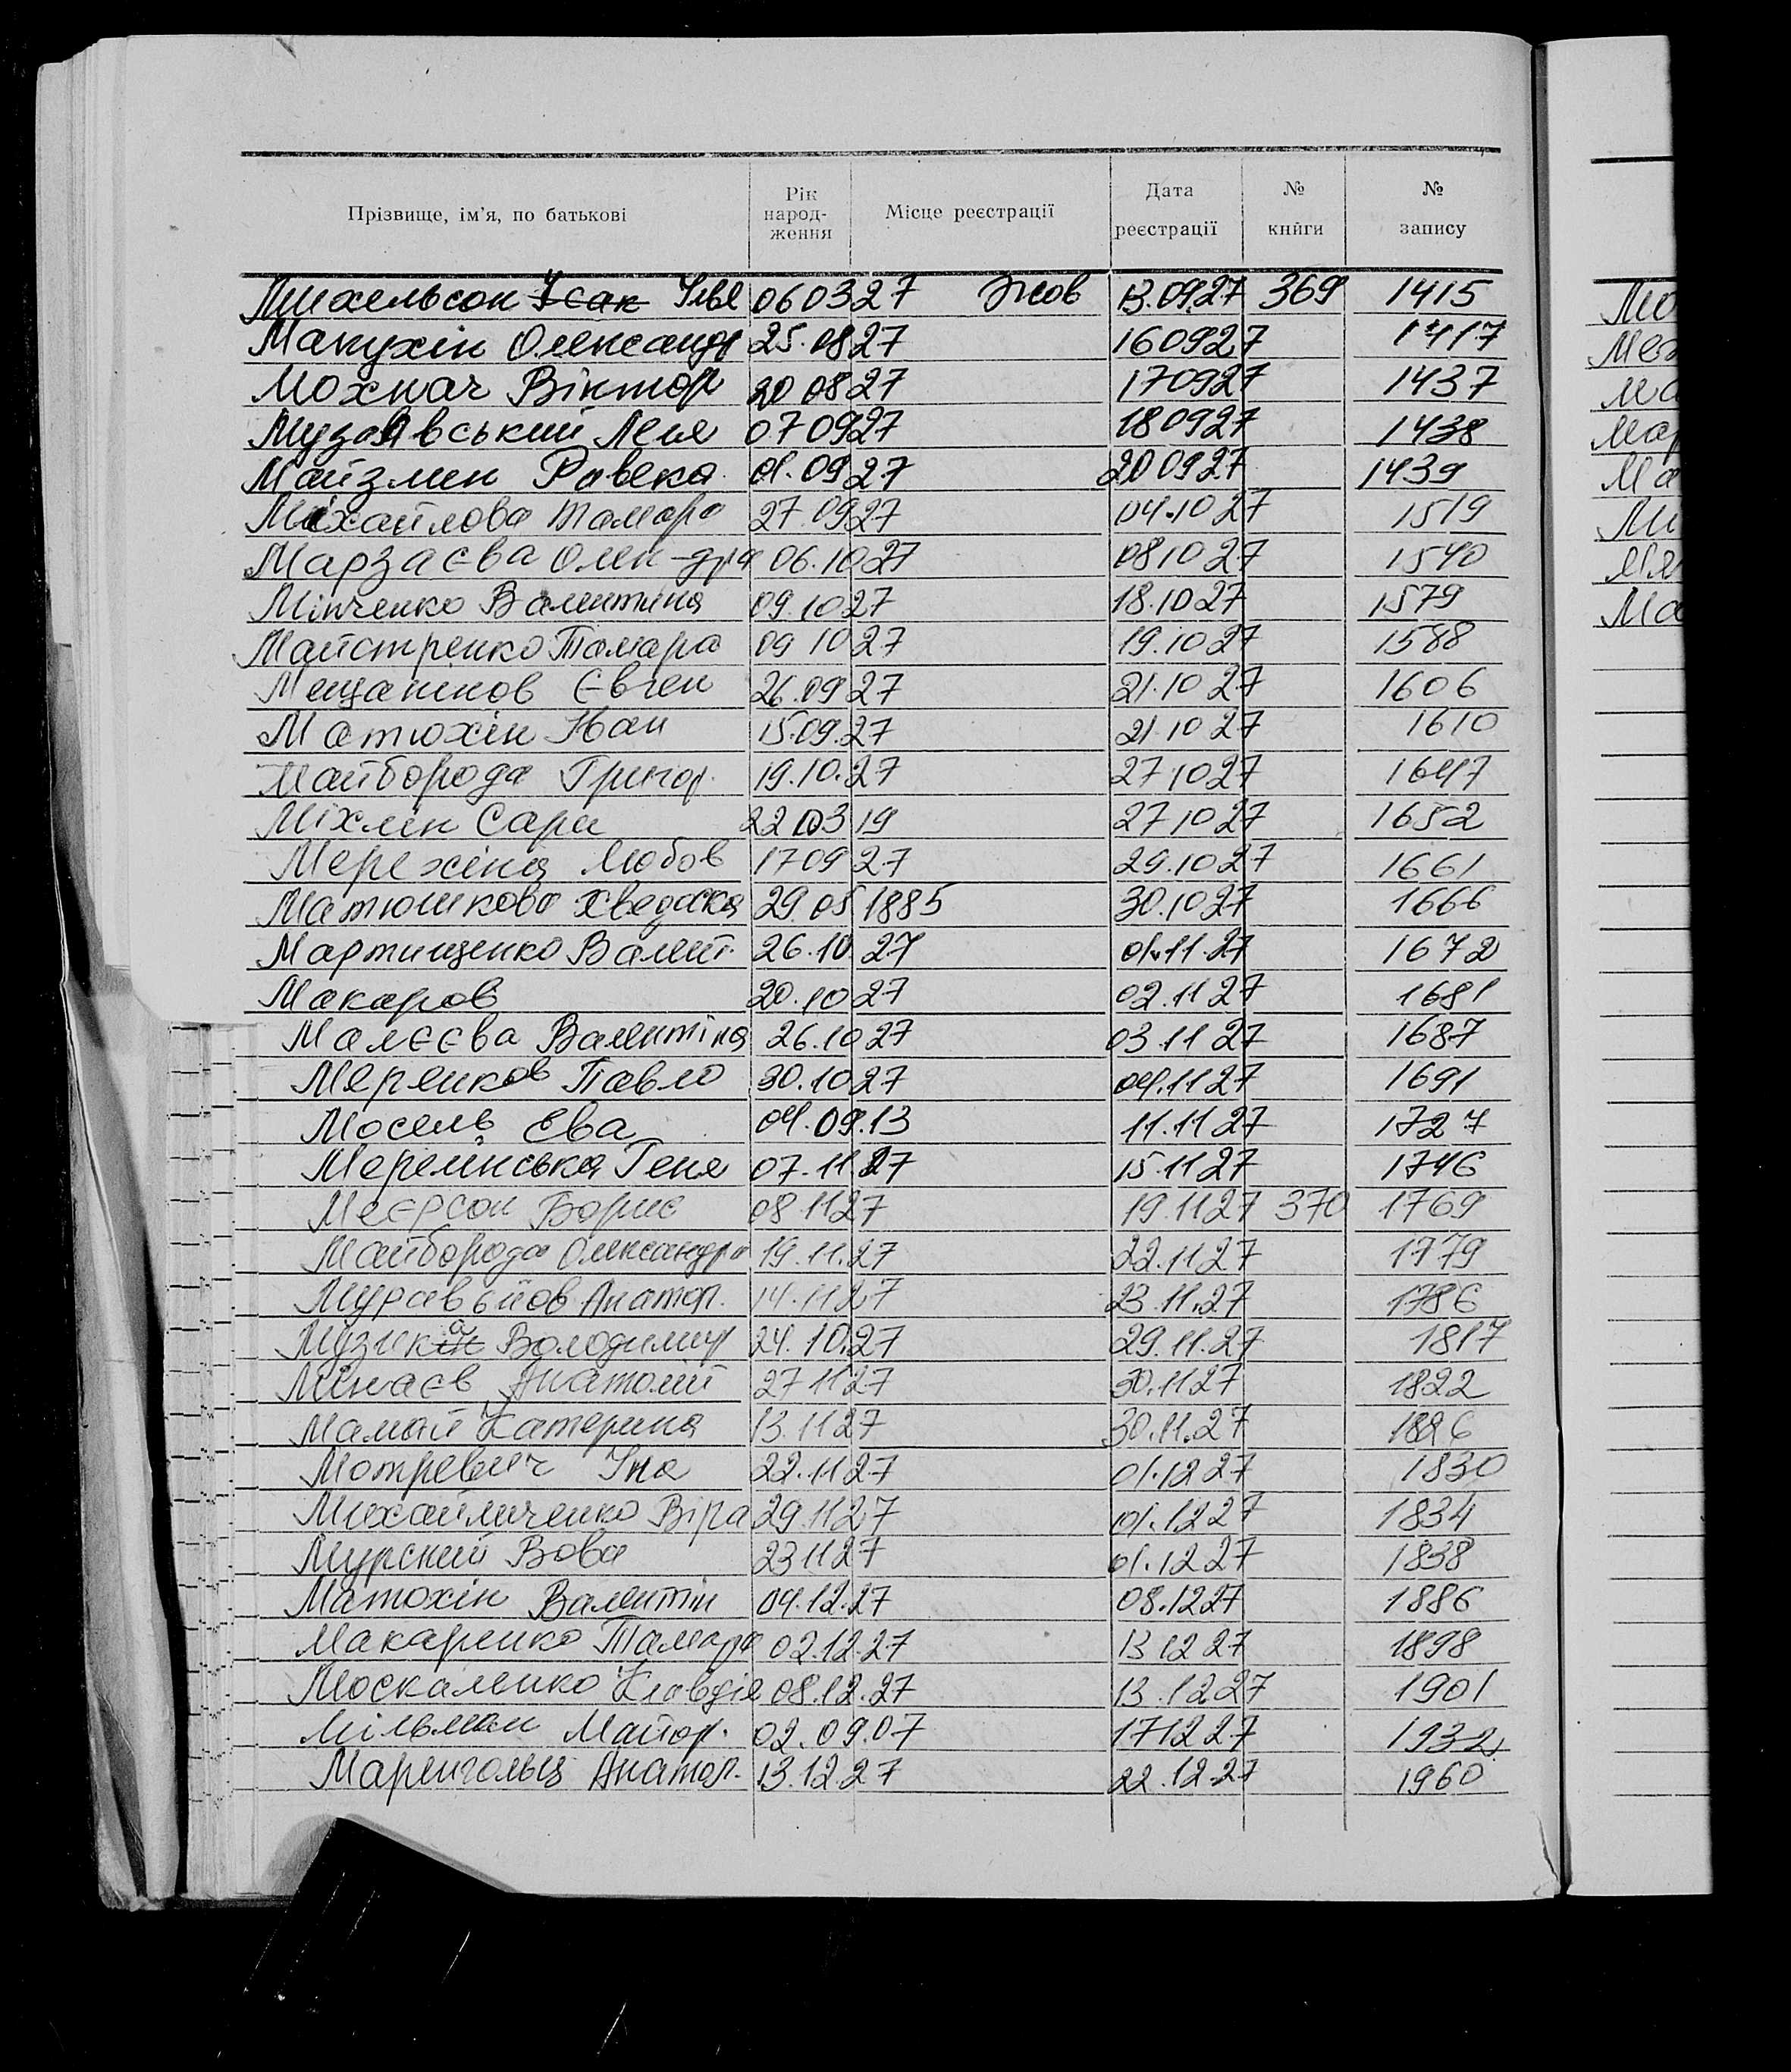 Прізвище, ім'я, по батькові Рік народ- ження Місце реєстрації Дата реєстрації № книги № запису
Михельсон Ісак Ілья 06 03 27 Жов 13.09.27 369 1415
Макухін Олександр 25.08 27 16 09 27 1417
Мохнач Віктор 20 08 27 17 09 27 1437
Музаєвський Леня 07 09 27 18 09 27 1438
Майзлин Ревека 01.09 27 20 09 27 1439
Міхайлова Тамара 27.09 27 04.10 27 1519
Марзаєва Олек-дра 06.10 27 08 10 27 1540
Мінченко Валентина 09.10 27 18.10 27 1579
Майстренко Тамара 09 10 27 19.10 27 1588
Мещанінов Євген 26.09 27 21.10 27 1606
Матюхін Іван 15.09.27 21 10 27 1610
Майборода Григор. 19.10.27 27 10 27 1647
Міхлін Сара 22 03 19 27 10 27 1652
Мерехіна Любов 17 09 27 29.10 27 1661
Матюшкова Хведоска 29.05 1885 30.10 27 1666
Мартищенко Валент. 26.10 27 01.11.27 1672
Макаров 20.10 27 02.11 27 1681
Малєєва Валентіна 26.10 27 03 11 27 1687
Меренков Павло 30.10 27 04.11 27 1691
Мосель Ева 04.09.13 11.11 27 1727
Мерлінська Геня 07.11.27 15.11 27 1746
Меєрсон Борис 08 11 27 19.11 27 370 1769
Майборода Олександра 19.11.27 22.11 27 1779
Муравьйов Анатол. 14.11 27 23.11.27 1786
Музика Володимир 24.10.27 29.11.27 1817
Мінаєв Анатолій 27 11 27 30.11 27 1822
Мамай Катерина 13.11 27 30.11.27 1826
Мотревич Іна 22.11 27 01.12 27 1830
Михайличенко Віра 29.11 27 01.12 27 1834
Мурский Вова 23 11 27 01.12 27 1838
Матюхін Валентін 04.12.27 08.12 27 1886
Макаренко Тамара 02.12.27 13 12 27 1898
Москаленко Клавдія 08.12.27 13.12 27 1901
Мільман Майор. 02.09.07 17 12 27 1932
Маренгольц Анатол. 13.12.27 22.12.27 1960